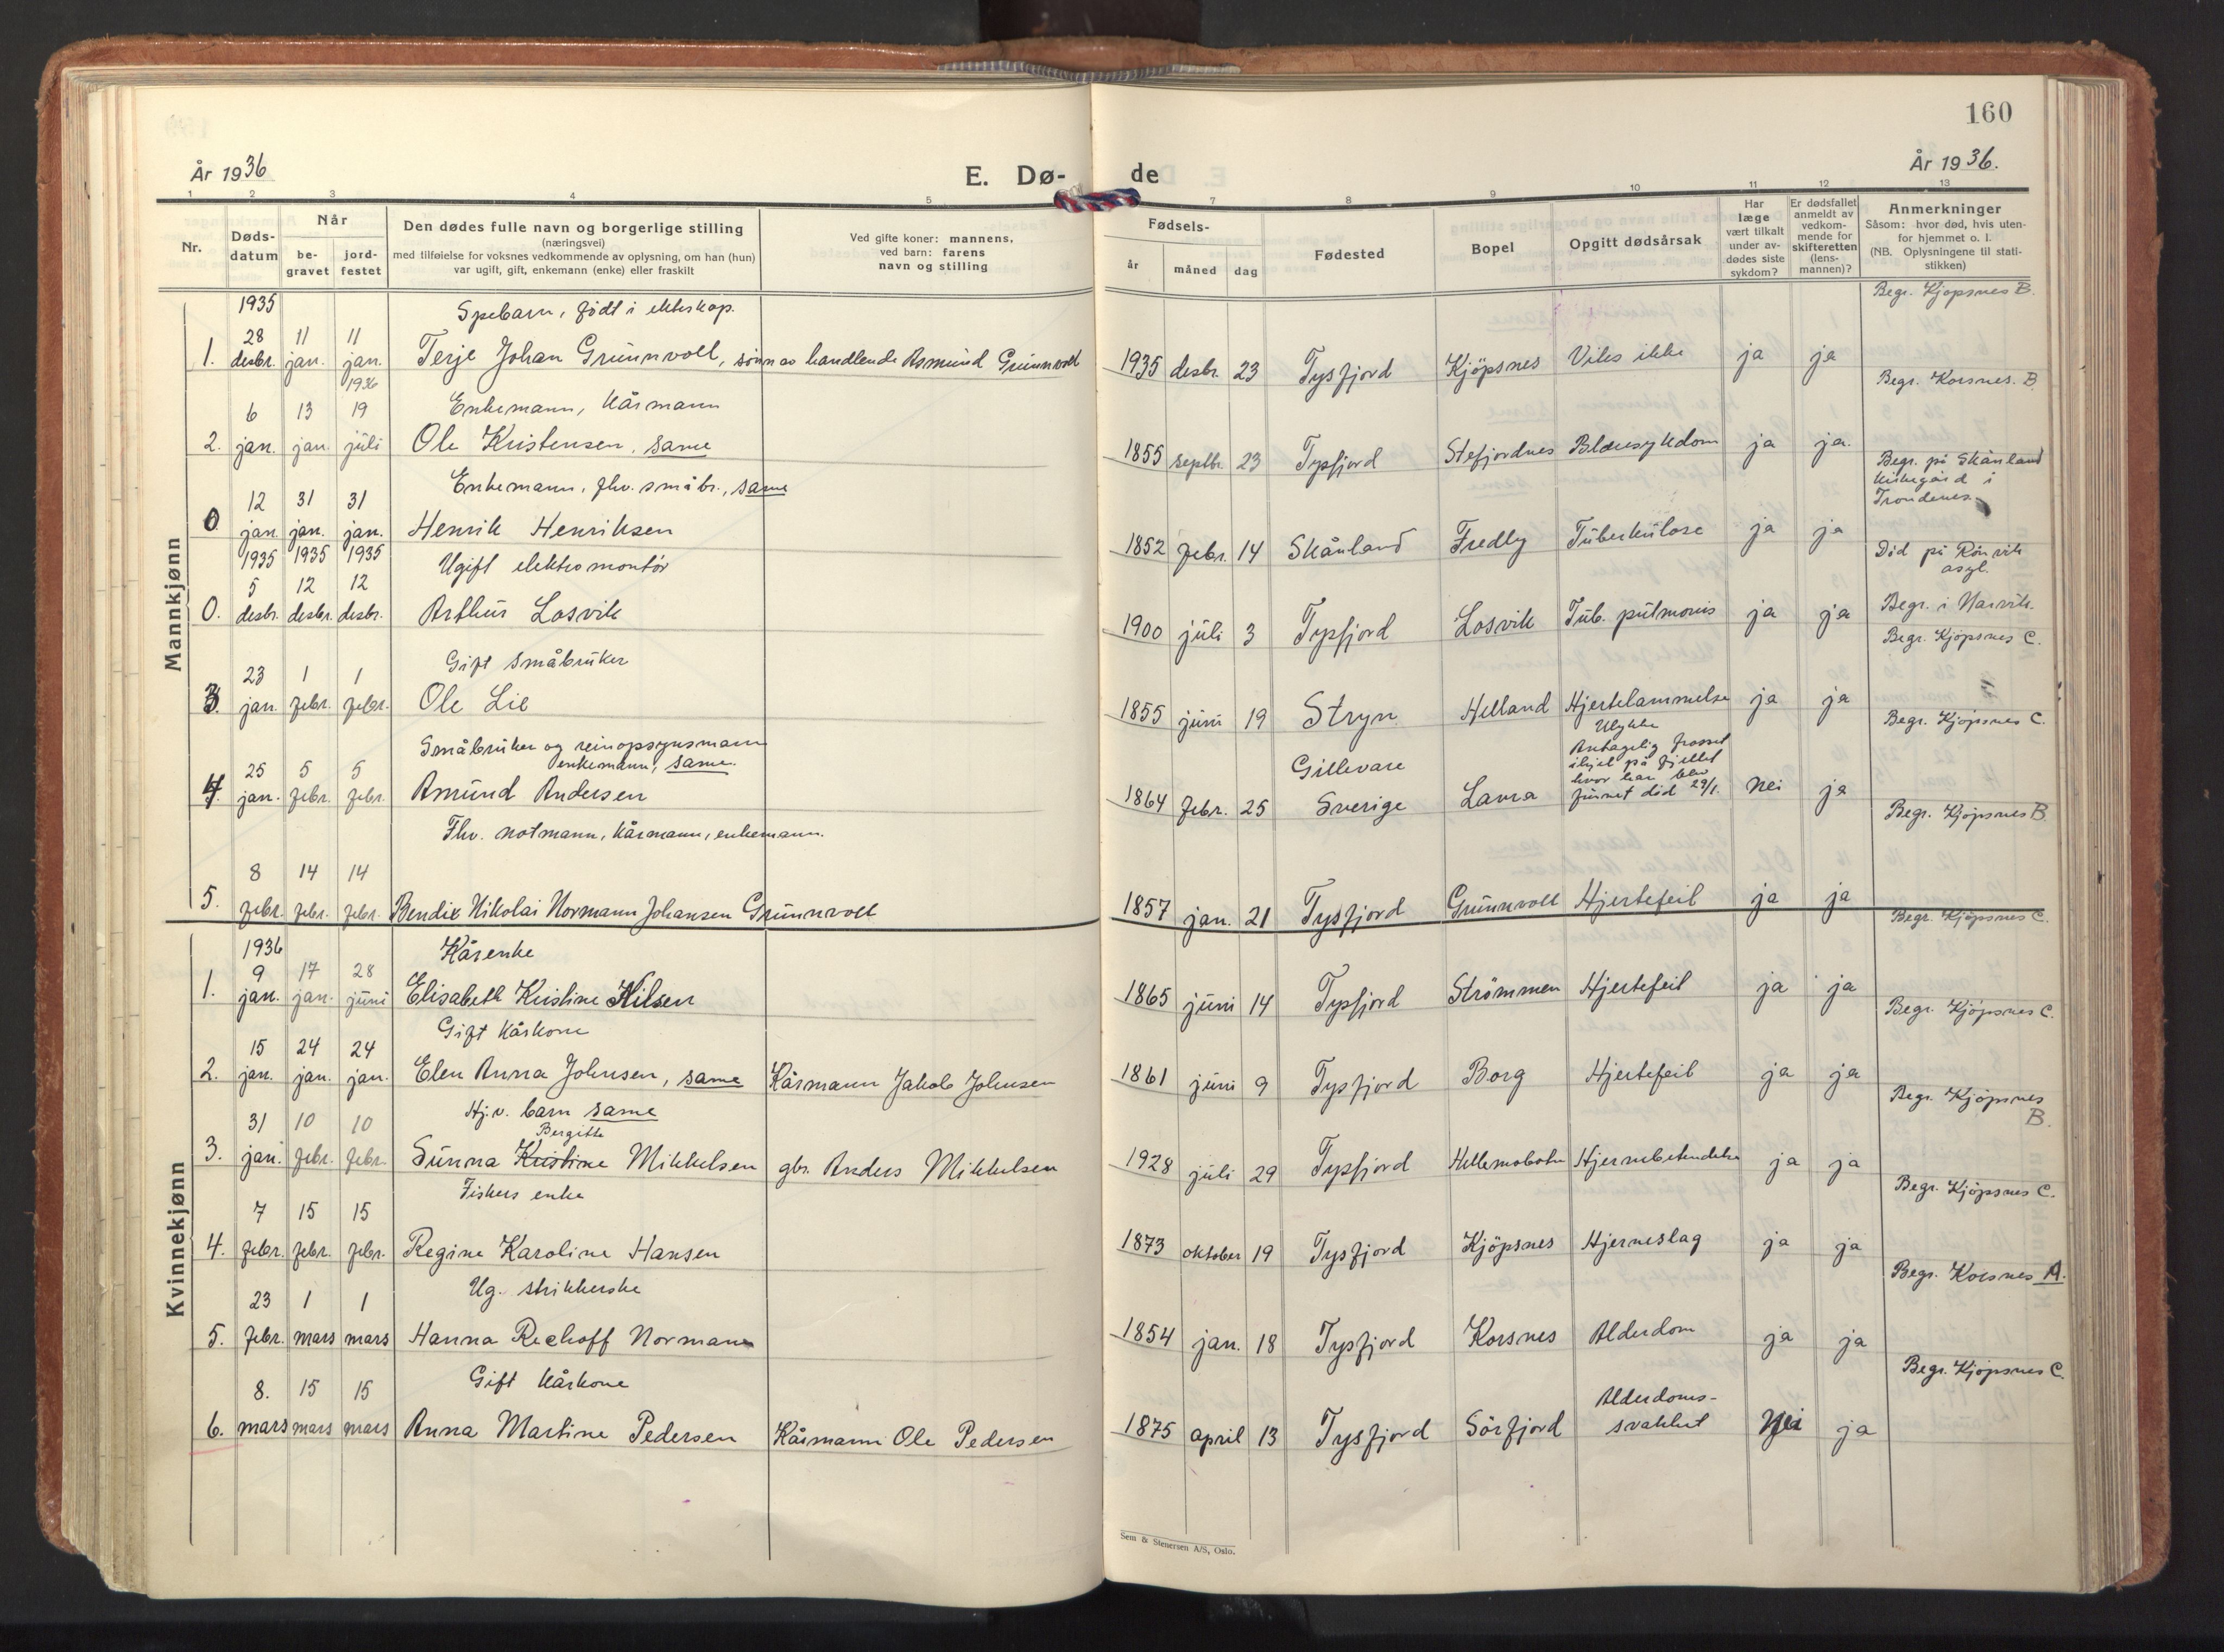 160
År 1936
E. Dø-
de
År 1936.
1 2 3 4 5 7 8 9 10 11 12 13
Nr.
Døds-
datum
Når
be-
gravet
jord-
festet
Den dødes fulle navn og borgerlige stilling
(næringsvei)
med tilføielse for voksnes vedkommende av oplysning, om han (hun)
var ugift, gift, enkemann (enke) eller fraskilt
Ved gifte koner: mannens,
ved barn: farens
navn og stilling
Fødsels-
år måned dag
Fødested
Bopel
Opgitt dødsårsak
Har
læge
vært tilkalt
under av-
dødes siste
sykdom?
Er dødsfallet
anmeldt av
vedkom-
mende for
skifteretten
(lens-
mannen)?
Anmerkninger
Såsom: hvor død, hvis uten-
for hjemmet o. l.
(NB. Oplysningene til stati-
stikken)
Mannkjønn
1935 Spebarn, född i ekteskap. Begr. Kjöpsnes B.
28 11 11
1. desbr. jan. jan. Terje Johan Grünnvoll, sönn av handlende Asmund Grünnvoll 1935 desbr. 23 Tysfjord Kjöpsnes Vites ikke ja ja
1936
6 13 19 Enkemann, kårmann Begr. Korsnes. B.
2. jan. jan. juli Ole Kristensen, same 1855 septbr. 23 Tysfjord Stefjordnes Blæresykdom ja ja.
12 31 31 Enkemann, fhv. småbr., same Begr. på Skånland
kirkegård i
Trondenes.
0 jan. jan. jan. Henrik Henriksen 1852 febr. 14 Skånland Fredly Tuberkulose ja ja
1935 1935 1935 Ugift elektromontör Död på Rönvik
asyl.
5 12 12
0. desbr. desbr. desbr. Arthur Losvik 1900 juli 3 Tysfjord Losvik Tub. pulmonis ja ja Begr. i Narvik.
23 1 1 Gift småbruker Begr. Kjöpsnes C.
3. jan. febr. febr. Ole Lie 1855 juni 19 Stryn Helland Hjertelammelse ja ja
25 5 5 Småbruker og reinopsynsmann
enkemann, same. Begr. Kjöpsnes C.
4. jan. febr. febr. Amund Andersen 1864 febr. 25 Gillevare
Sverige Lavra Ulykke
Antagelig frosset
ihjel på fjellet
hvor han blev
funnet död 29/1. Nei ja
Fhv. notmann, kårmann, enkemann. Begr. Kjöpsnes B.
8 14 14
5. febr. febr. febr. Bendix Nikolai Normann Johansen Grünnvoll 1857 jan. 21 Tysfjord Grünnvoll Hjertefeil ja ja
Kvinnekjønn
1936 Kårenke Begr. Kjöpsnes C.
9 17 28
1. jan. jan. juni Elisabeth Kristine Nilsen 1865 juni 14 Tysfjord Strömmen Hjertefeil ja ja
15 24 24 Gift kårkone Begr. Kjöpsnes C.
2. jan. jan. jan. Elen Anna Johnsen, same Kårmann Jakob Johnsen 1861 juni 9 Tysfjord Borg Hjertefeil ja ja
31 10 10 Hj.v. barn same Begr. Kjöpsnes
B.
Bergitte
3. jan. febr. febr. Sunna Kristine Mikkelsen gbr. Anders Mikkelsen 1928 juli 29 Tysfjord Hellemobotn Hjernebetendelse ja ja
7 15 15 Fiskers enke Begr. Kjöpsnes C.
4. febr. febr. febr. Regine Karoline Hansen 1873 oktober 19 Tysfjord Kjöpsnes Hjerneslag ja ja
23 1 1 Ug. strikkerske Begr. Korsnes A.
5. febr. mars mars Hanna Rechoff Normann 1854 jan. 18 Tysfjord Korsnes Alderdom ja ja
8. 15 15 Gift kårkone Begr. Kjöpsnes C.
6. mars mars mars Anna Martine Pedersen Kårmann Ole Pedersen 1875 april 13 Tysfjord Sörfjord Alderdoms-
svakhet Nei ja
Sem & Stenersen A/S, Oslo.